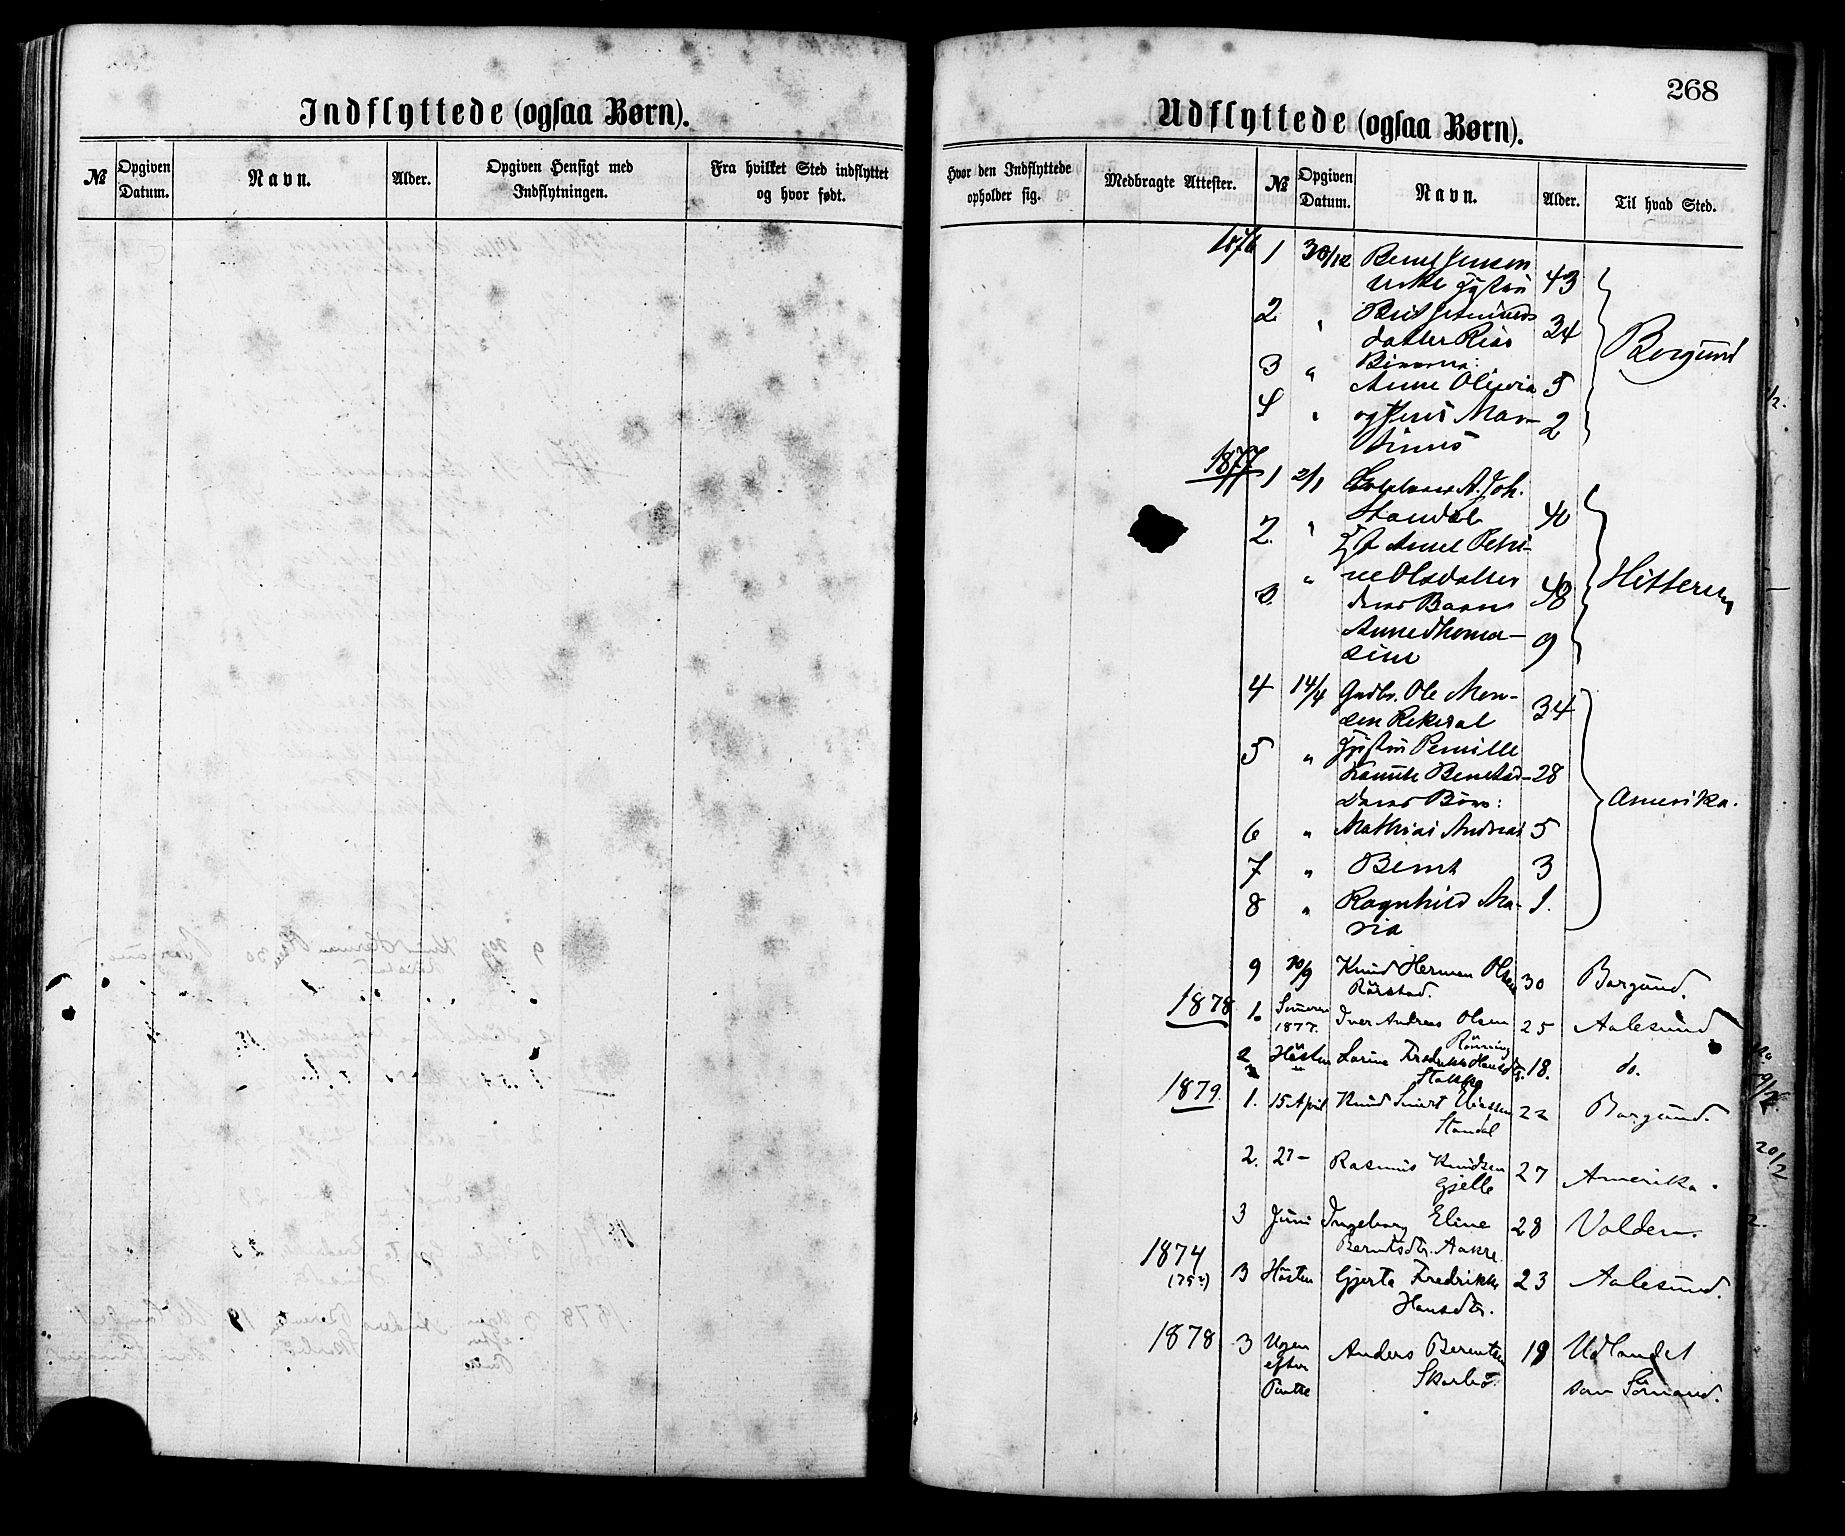 268
Indflyttede (ogsaa Børn).
№
Opgiven Datum.
Navn.
Alder.
Opgiven Hensigt med Indflytningen.
Fra hvilket Sted indflyttet og hvor født.
Udflyttede (ogsaa Børn).
Hvor den Indflyttede opholder sig.
Medbragte Attester.
№
Opgiven Datum.
Navn.
Alder.
Til hvad Sted.
1876 1 30/12 Bernt Jensen
43
2 " Berit
datter 34 Borgund
3 "
Anne Olivia 5
4 " og Jens Mar-
tinus 2
1877 1 2/1 A. Joh.
Standal 40
2. " Anne Petri-
ne Olsdatter 48 Hitteren
3. " deres Barn
Anne Thoma-
sine 9
4 14/4 Gndbr. Ole Mon-
sen Rekkedal 34
5 " Pernille
28
deres Børn: Amerika.
6 " Mathias Andreas 5
7 " Bernt 3
8 " Ragnhild Ma- 1.
ria
9 10/9 Knud Herman Olsen 30 Borgund.
1878 1. Sommeren Iver Andreas Olsen 25 Aalesund
1877. Rønning
2 Høsten Larine Fredrikke Hansdtr. 18. do.
1879. 1. 15 April Knud Sivert Eliassen 22 Borgund.
Standal
2. 27 - Rasmus Knudsen 27 Amerika.
Gjelle
3 Juni Ingeborg Eline 28 Volden.
Berntsdtr. Aakre
1874 3 Høsten Gjerta Fredrikke 23 Aalesund.
(75?) Hansdtr.
1878 3 Ugen Anders Berentsen 19 Udlandet
efter Skarbø. som Sømand.
Paaske